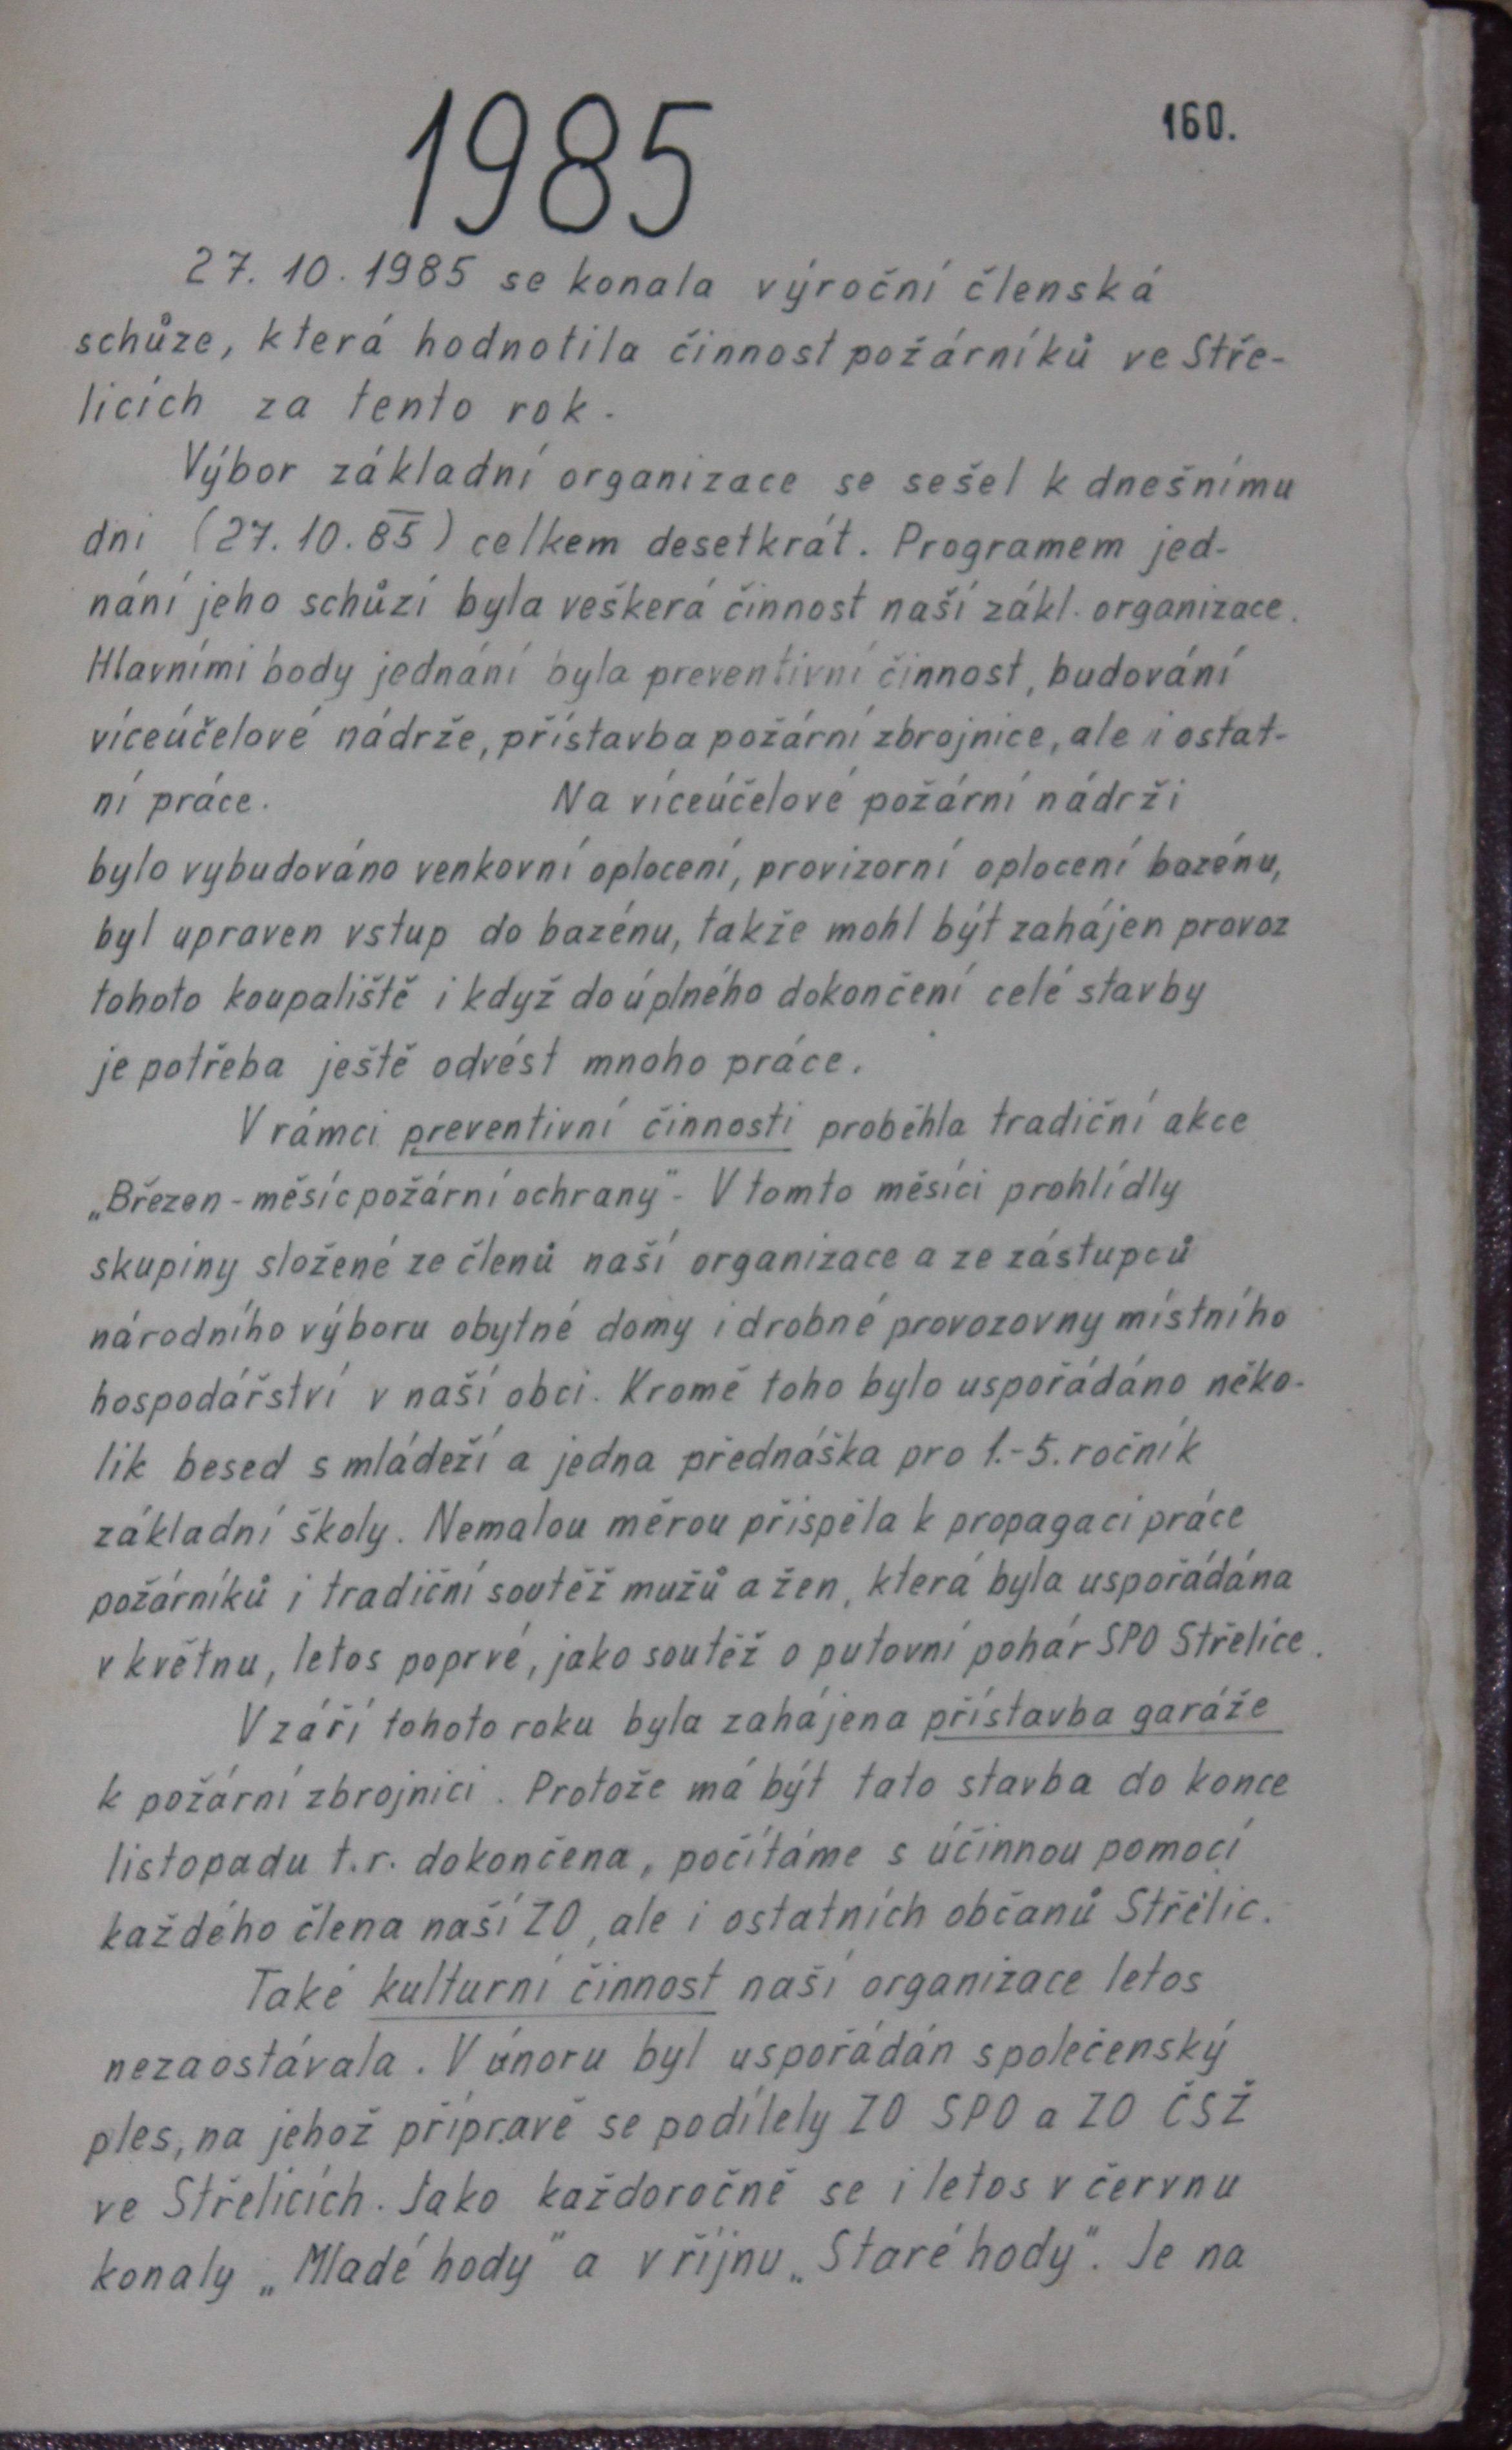 1985
160.
27. 10. 1985 se konala výroční členská
schůze, která hodnotila činnost požárníků ve Stře-
licích za tento rok.
Výbor základní organizace se sešel k dnešnímu
dni (27. 10. 85) celkem desetkrát. Programem jed-
nání jeho schůzí byla veškerá činnost naší zákl. organizace.
Hlavními body jednání byla preventivní činnost, budování
víceúčelové nádrže, přístavba požární zbrojnice, ale i ostat-
ní práce. Na víceúčelové požární nádrži
bylo vybudováno venkovní oplocení, provizorní oplocení bazénu,
byl upraven vstup do bazénu, takže mohl být zahájen provoz
tohoto koupaliště i když do úplného dokončení celé stavby
je potřeba ještě odvést mnoho práce.
V rámci preventivní činnosti proběhla tradiční akce
„Březen - měsíc požární ochrany“- V tomto měsíci prohlídly
skupiny složené ze členů naší organizace a ze zástupců
národního výboru obytné domy i drobné provozovny místního
hospodářství v naší obci. Kromě toho bylo uspořádáno něko-
lik besed s mládeží a jedna přednáška pro 1.-5. ročník
základní školy. Nemalou měrou přispěla k propagaci práce
požárníků i tradiční soutěž mužů a žen, která byla uspořádána
v květnu, letos poprvé, jako soutěž o putovní pohár SPO Střelice.
V září tohoto roku byla zahájena přístavba garáže
k požární zbrojnici. Protože má být tato stavba do konce
listopadu t.r. dokončena, počítáme s účinnou pomocí
každého člena naší ZO, ale i ostatních občanů Střelic.
Také kulturní činnost naší organizace letos
nezaostávala. V únoru byl uspořádán společenský
ples, na jehož přípravě se podílely ZO SPO a ZO ČSŽ
ve Střelicích. Jako každoročně se i letos v červnu
konaly „Mladé hody“ a v říjnu „Staré hody“. Je na